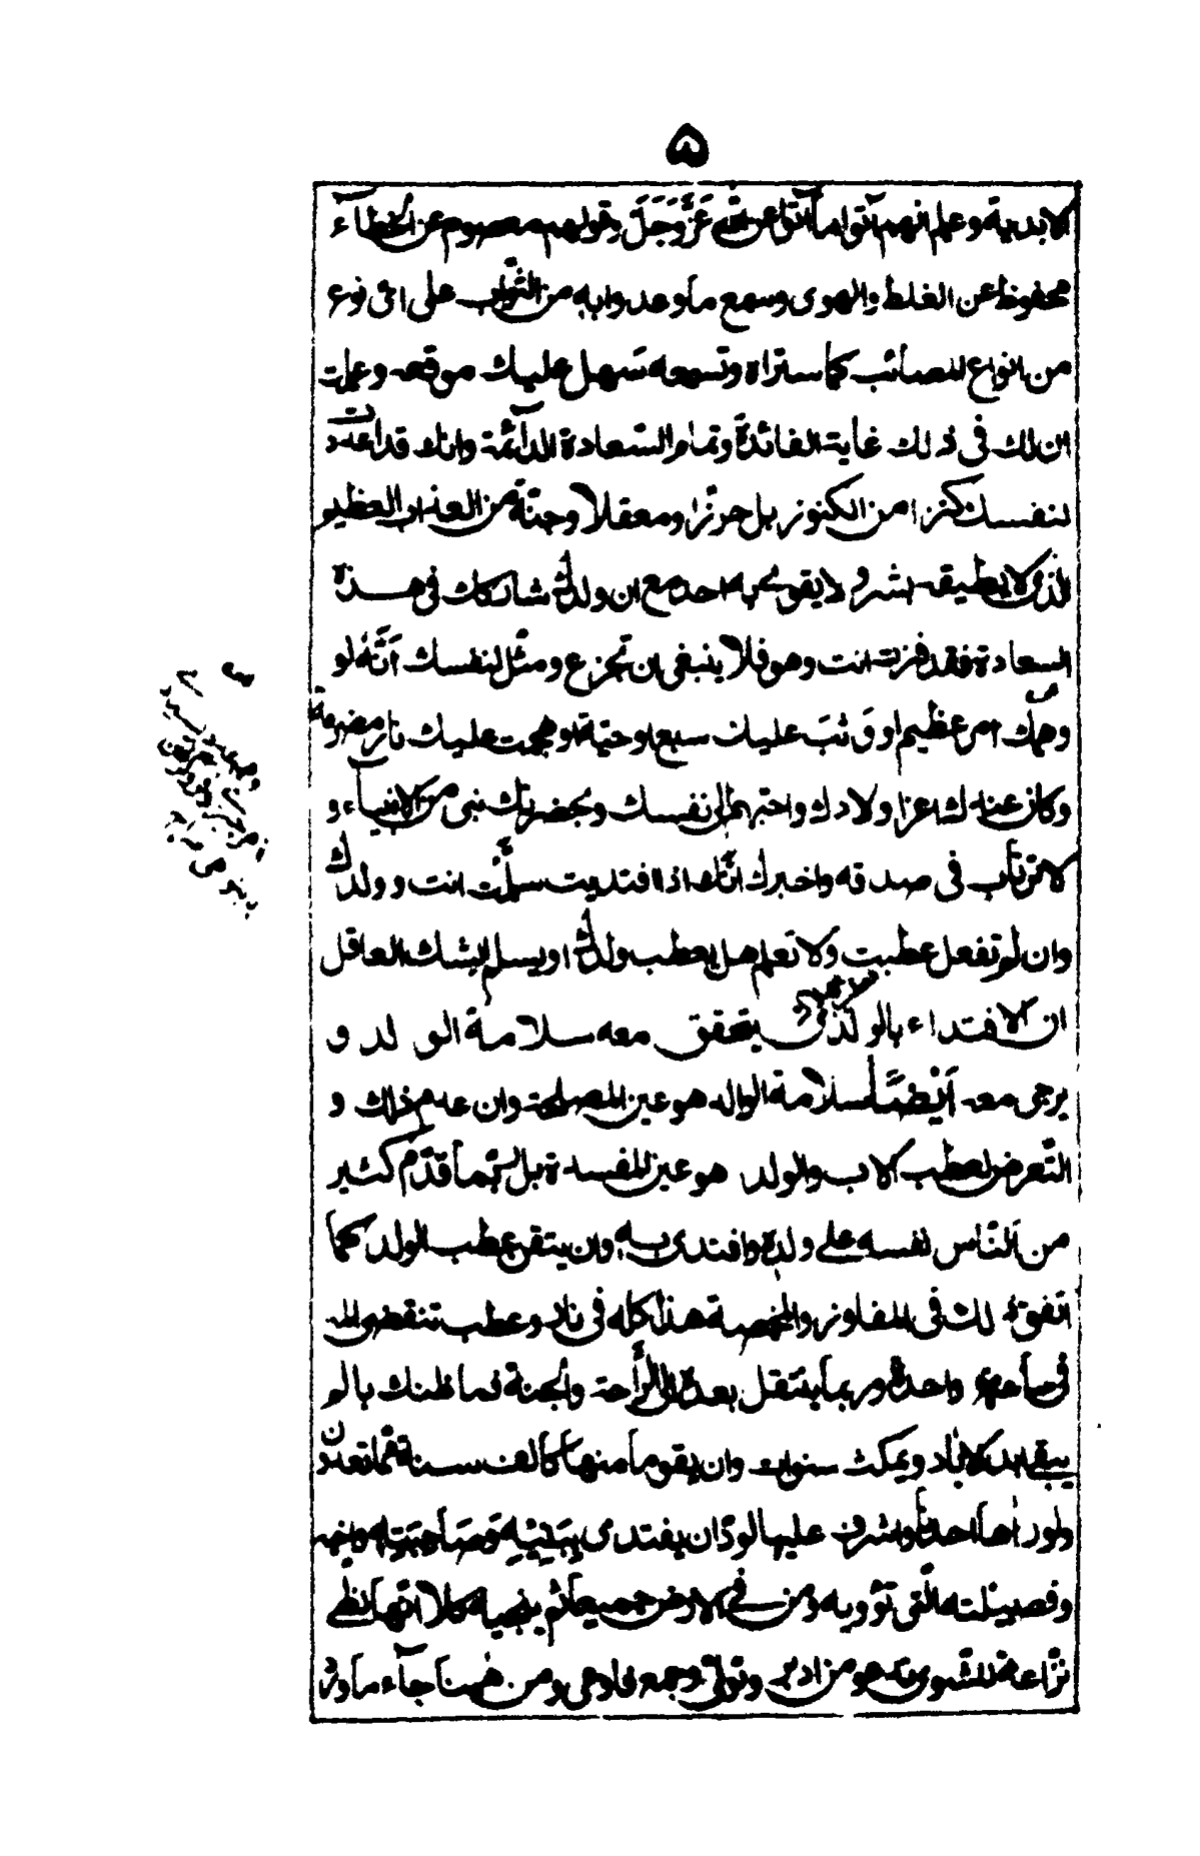 ۵
الابدية وعلم انهم اتوا بما اتوا عن الله عَزَّوَجَلَّ وقولهم معصوم عن الخطاء
محفوظ عن الغلط والهوى وسمع ما وعدوا به من الثواب على اى نوع
من انواع المصائب كما ستراه وتسمعه سَهل عليك موقعه وعلمت
ان لك فى ذلك غاية الفائدة وتمام السّعادة الدآئمة وانك قد اعددت
لنفسك كنزا من الكنوز بل حرزا ومعقلا وجنّة من العذاب العظيم
الذى لا يطيقه بشر ولا يقوى به احد مع ان ولدك شاركك فى هذه
السعادة فقد فزت انت وهو فلا ينبغى ان تجزع ومثّل لنفسك انّه لو
دهمك امر عظيم او وَثبَ عليك سبع او حية او هجمت عليك نار مضرمة
وكان عندك اعز اولادك واحبهم الى نفسك وبحضرتك نبى من الانبياء و
لا ترتاب فى صدقه واخبرك انّك اذا افتديت سلّمت انت وولدك
وان لم تفعل عطبت ولا تعلم هل يعطب ولدك او يسلم ايشك العاقل
ان الافتداء بالولد الذى يتحقق معه سلامة الولد و
يرجى معه اَيْضًا سلامة الوالد هو عين المصلحة وان عدم ذلك و
التّعرض لعطب الاب والولد هو عين المفسدة بل ربّما قدّم كثير
من النّاس نفسه على ولده وافتدى به وان يتقن عطب الولد كما
اتفق ذلك فى المفاوز والمخمصة هذا كله فى نار وعطب تنقضى المه
فى ساعة واحدة وربما ينتقل بعده الى الرّاحة والجنة فما ظنك بالم
يبقى ابد الاباد ويمكث سنوات وان يوما منها كالف سنة مّما تعدّون
ولو راها احدنا واشرف عليها لودّ ان يفتدى بِبَنِيْهِ وَصَاحِبَتِه واخيه
وفصيلته الّتى تؤويه ومن فى الارض جميعا ثم ينجيه كلا انّها لظى
نزّاعة للشّوى تدعو من ادبر وتولّى وجمع فاوعى ومن ههنا جآء ما ورد